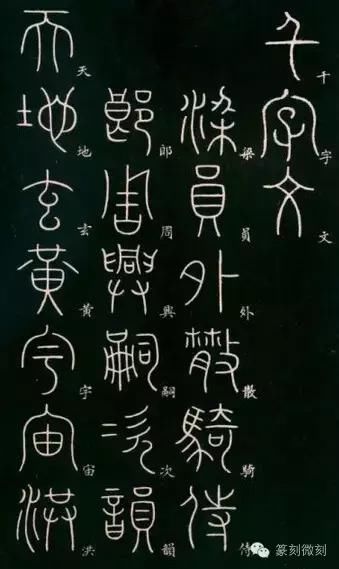 千字文
千字文
梁員外散騎侍
梁員外散騎侍
郎周興嗣次韻
郎周興嗣次韻
天地玄黃宇宙洪
天地玄黃宇宙洪
篆刻微刻